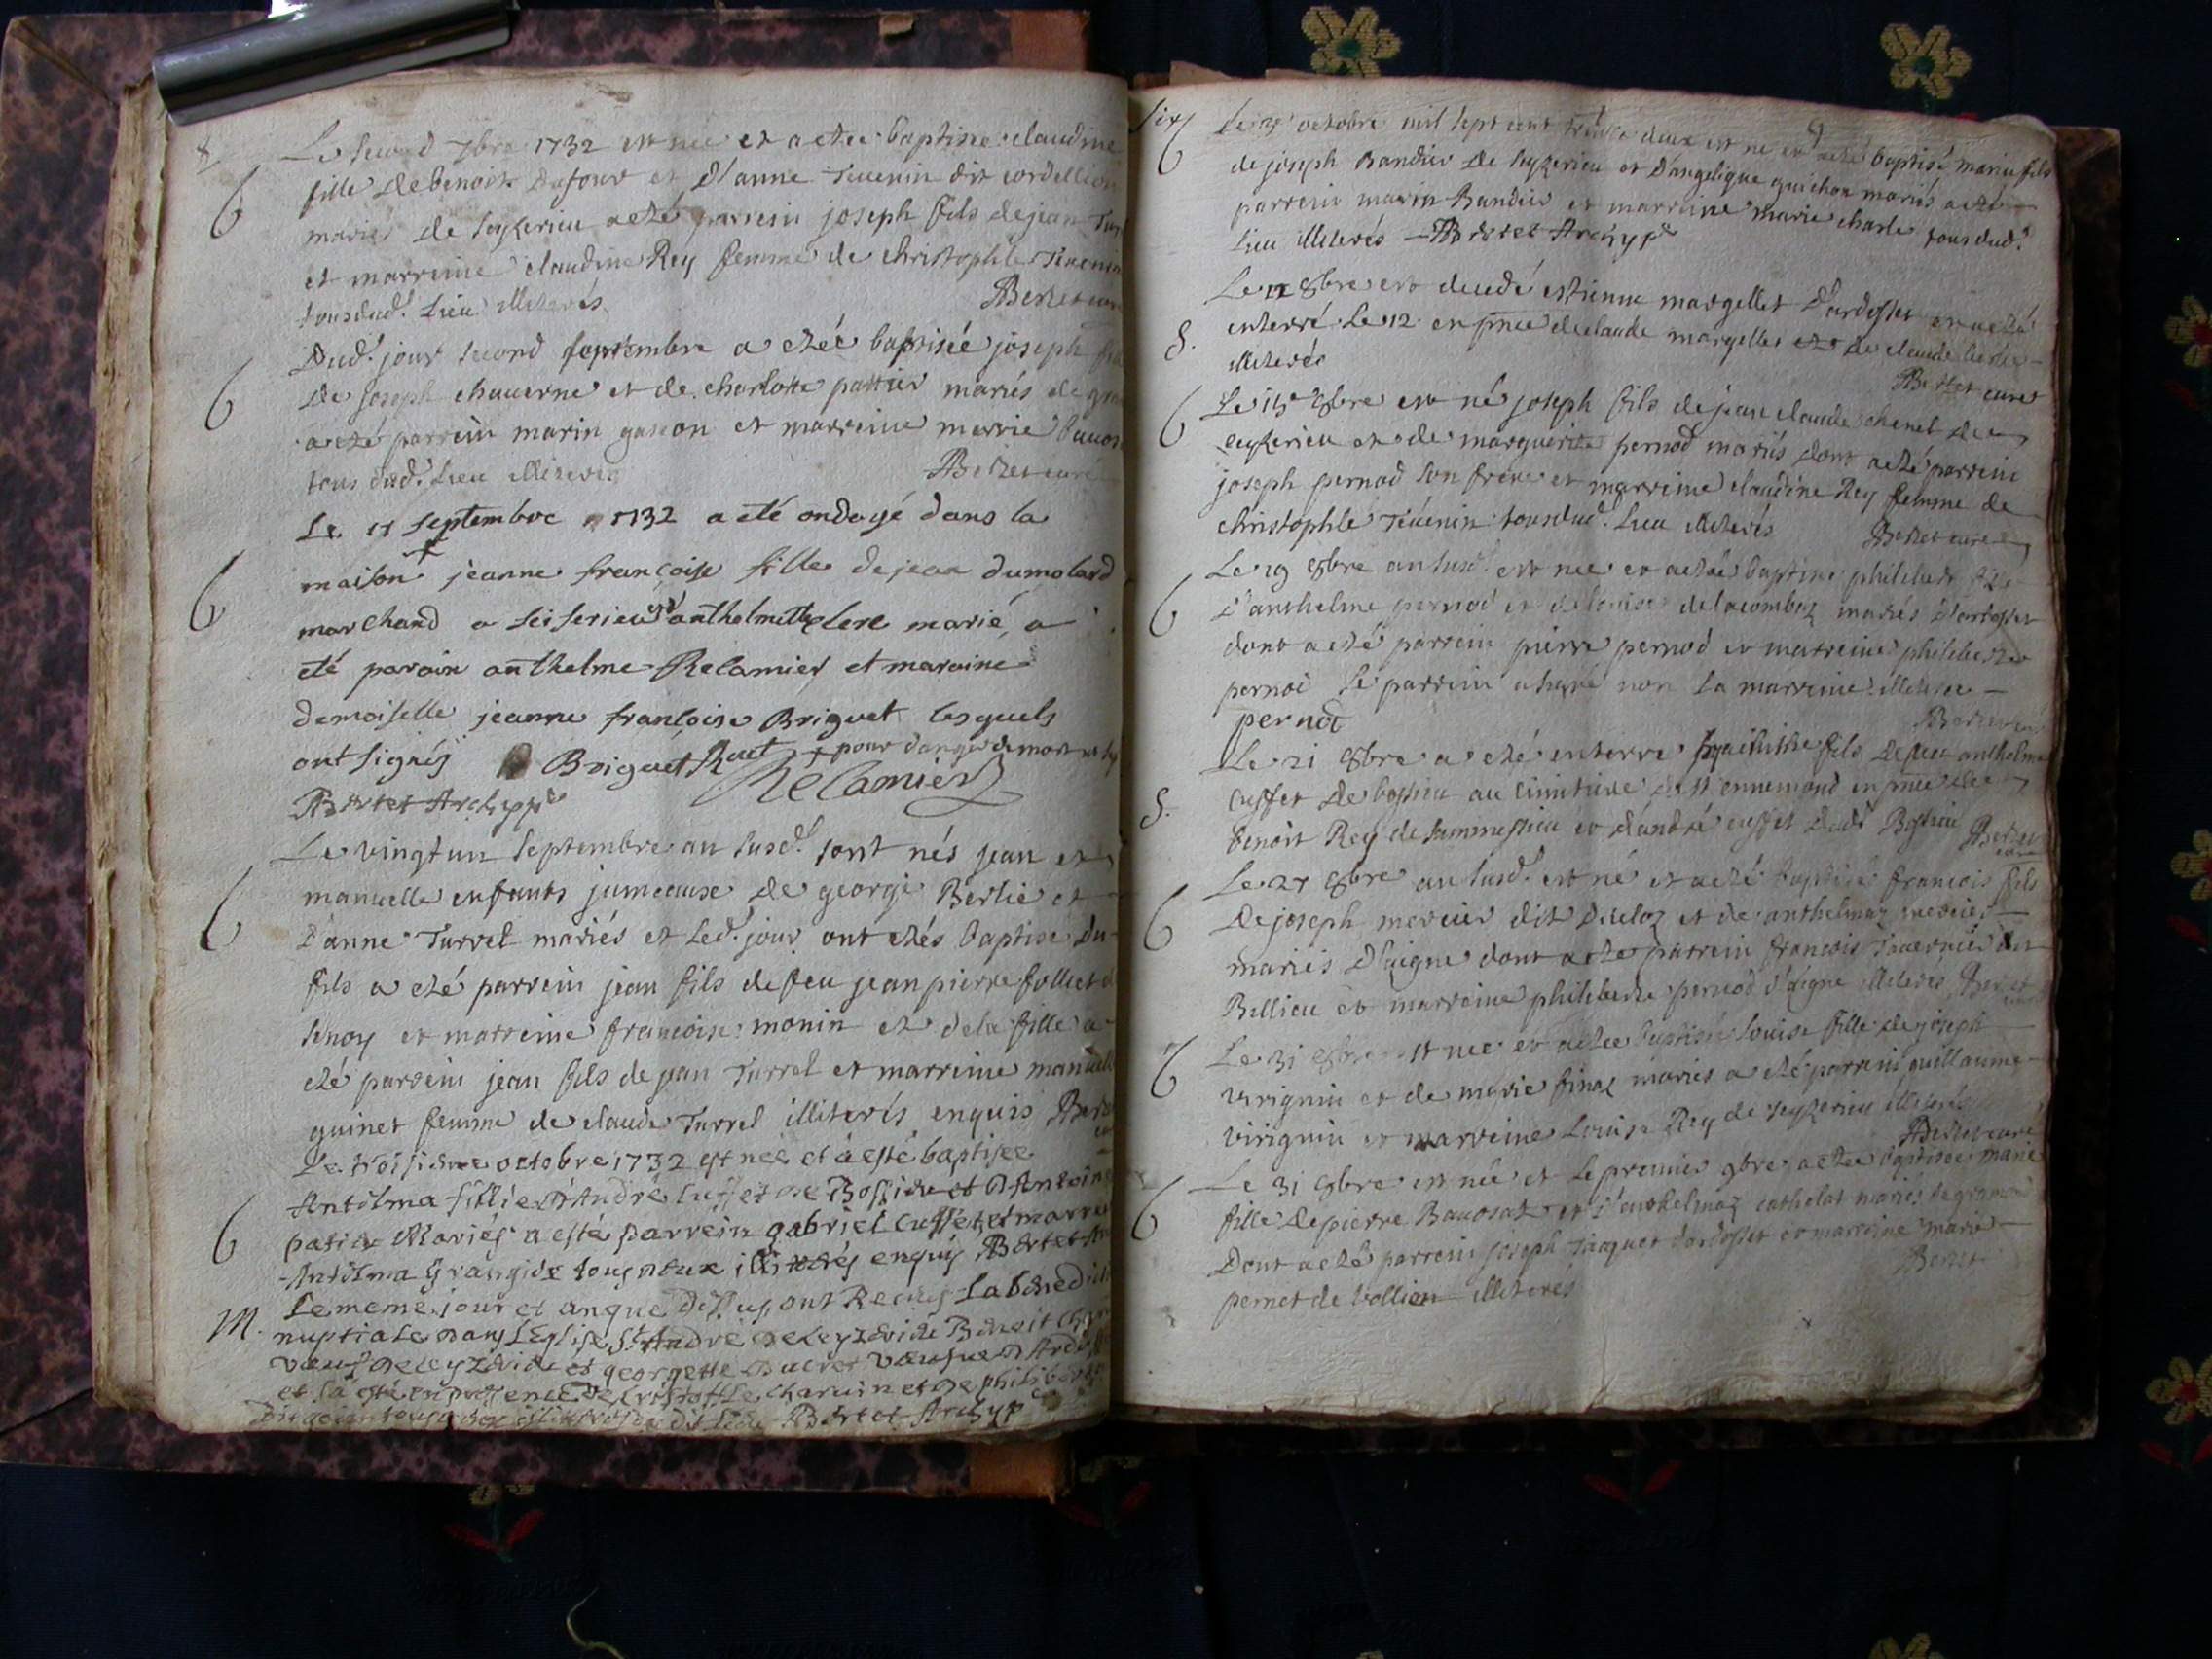 8
Le second 7bre 1732 est née et a etée baptisée claudine
6
fille de benoit Dufour et d'anne Tevenin dit cordellion
mariés de seyzerieu a eté parrein joseph fils de jean
et marreine claudine Rey femme de christophle Tevenin
tous dud.t lieu illiterés Bertet curé
Dud.t jour second septembre a etée baptisée joseph
6
de joseph chauerne et de charlotte pattier mariés de
a eté parrein marin gascon et marreine marie
tous dud.t lieu illiterés Bertet curé
Le 11 septembre 1732 a eté ondoyé dans la
6
maison + jeanne françoise fille de jean dumolard
marchand a seiserieu et anthelmette clerc marié, a
eté parain anthelme Relamier et maraine
demoiselle jeanne françoise Briguet lesquels
ont signés Briguet Ruet + pour danger de mort
Bertet Archyp.e Relamier
Le vingt un septembre an susd.t sont nés jean et
6
manuelle enfants jumeaux de george Berlie et
d'anne Turrel mariés et led.t jour ont etés baptisé du
fils a eté parrein jean fils de feu jean pierre folliet
senoy et marreine francoise monin et de la fille a
eté parrein jean fils de jean Turrel et marreine manuelle
guinet femme de claude Turrel illiterés enquis
Le troisidme octobre 1732 est née et a esté baptisee
Antelma fillie d'André Cuffet de Bossieu et d'Antoine
6
patier Mariés a esté parrein gabriel Cuffet et marre
Antelma Grangier tous deux illiterés enquis Bertet
M.
Le meme jour et an que dessus ont Receus La benedict
nuptiale dans L'Eglise St André de Leyzerieu Benoit
veuf de Leyzerieu et georgette veufue d'Ard
et la esté en presence de Cristofle charuin et de philibert
Bertet Archyp
9
Six
Le octobre mil sept cent trente deux est né et a eté baptisé marin fils
6
de joseph Bandier de seyzerieu et d'angelique guichon mariés a eté
parrein marin Bandier et marreine marie charle tous dud.t
lieu illiterés Bertet Archyp.e
Le 11 8bre est decedé estienne margellet d'ardosset et a eté
S.
enterré le 12 en p̃nce de claude margellet et de claude berlie
illiterés Bertet curé
Le 15 8bre est né joseph fils de jean claude chenel de
6
ceyzerieu et de marguerite pernod mariés dont a eté parrein
joseph pernod son frere et marreine claudine Rey femme de
christophle Tevenin tous dud.t lieu illiterés Bertet curé
Le 19 8bre an susd.t est née et a etée baptisée philiberte fille
6
d'anthelme pernod et de louise delacombaz mariés d'ardosset
dont a eté parrein pierre pernod et marreine philiberte
pernod le parrein a signé non la marreine illiterée
pernod Bertet curé
Le 21 8bre a eté enterré hyacinthe fils de feu anthelme
S.
cuffet de bossieu au cimitiere de St ennemond en p̃nce de
benoit Rey de hammessieu et d'andré cuffet dud.t Bossieu Bertet curé
Le 27 8bre an susd.t est né et a eté baptisé francois fils
6
de joseph mercier dit Ducloz et de anthelmaz mercier
mariés d'aigne dont a eté parrein francois Tavernier de
Billieu et marreine philiberte pernod d'aigne illiterés Bertet curé
Le 31 8bre est née et a etée baptisée louise fille de joseph
6
virignin et de marie finaz mariés a eté parrein guillaume
virignin et marreine Louise Rey de seyzerieu illiterés
Bertet curé
Le 31 8bre est née et le premier 9bre a etée baptisée marie
6
fille de pierre Bauosat et d'anthelmaz cathelat mariés de gramond
Dont a eté parrein joseph jacquet d'ardosset et marreine marie
pernet de vollien illiterés Bertet